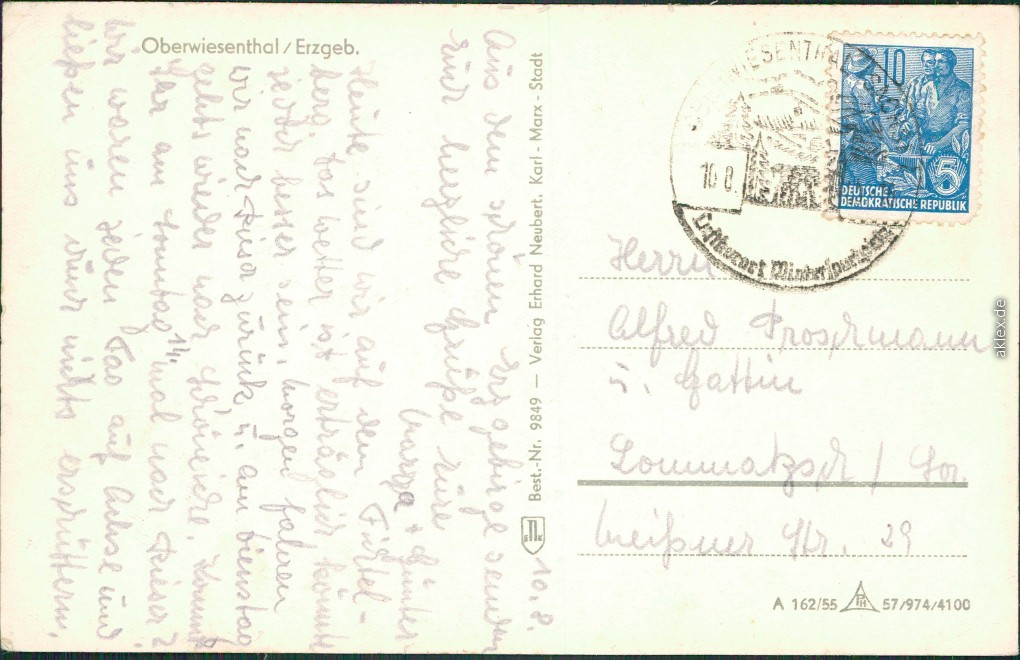 Oberwiesenthal / Erzgeb.
10. 8.
Aus dem schönen Erzgebirge senden
Euch herzliche Grüße Eure
+ Günter
Heute sind wir auf dem Fichtel-
berg, das Wetter ist erträglich könnt
jeder besser sein, morgen fahren
wir nach zurück, u. am Dienstag
gehts wieder nach Kommt
Ihr am Sonntag mal nach Riesa?
Wir waren jeden Tag auf Achse und
ließen uns durch nichts erschüttern.
Best.-Nr. 9849 — Verlag Erhard Neubert, Karl-Marx-Stadt
WIESENTHAL
10 8.
Luftkurort Wintersportplatz
10
5
DEUTSCHE
DEMOKRATISCHE REPUBLIK
Herrn
Alfred Proschmann
u. Gattin
Lommatzsch / Sa.
Meißner Str. 29
A 162/55 57/974/4100
aklex.de